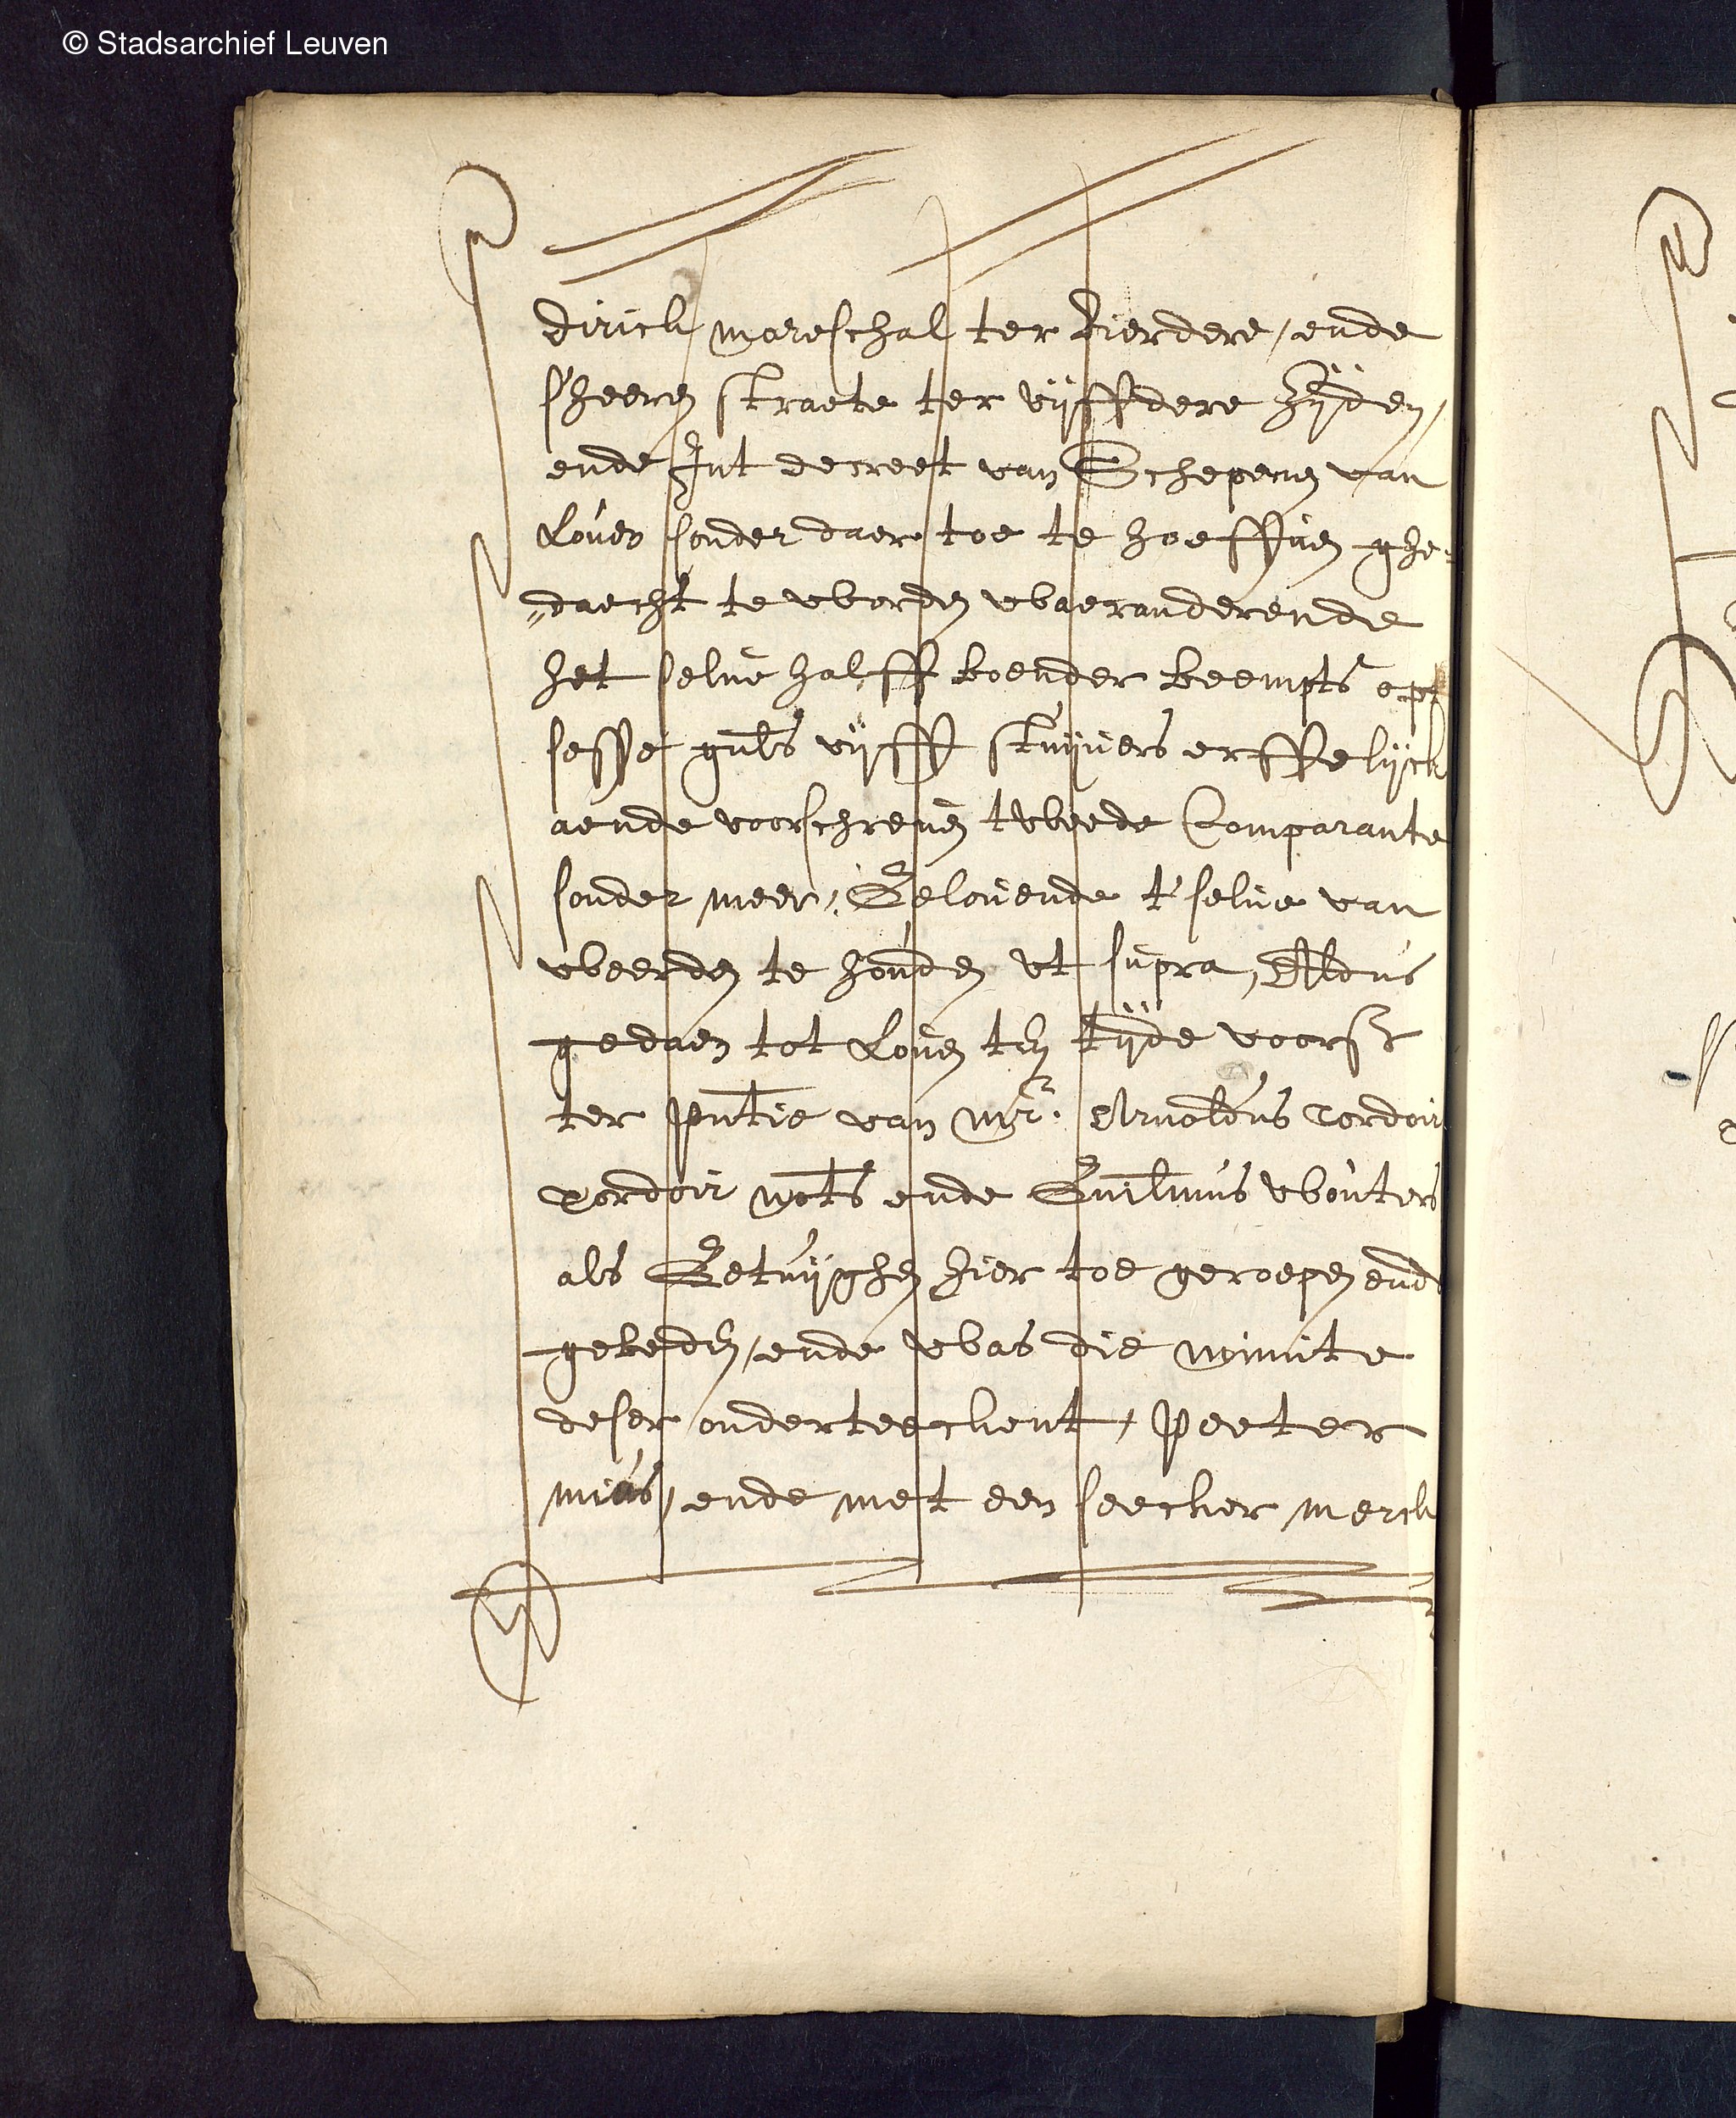 © Stadsarchief Leuven
dirick mareschal ter vierdere, ende
s'heeren straete ter vijffdere zijden,
ende Int decreet van Schepenen van
Loven sonder daer toe te hoeffven ghe=
„daecht te worden waeranderende
het selve halff boender Beempts opt
sesse guls vijff stuijvers erffelijck
aende voorschreven tweede Comparante
sonder meer, Gelovende t'selve van
weerden te houden vt supra, Aldus
gedaen tot Loven ten tijde voors
ter pntie van mr. Arnoldus Cordoir
Cordoir nots ende Guilmus Wouters
als Getuijghen hier toe geroepen ende
gebeden, ende was die minute
deser onderteeckent, Peeter
mias, ende met een seecker merck